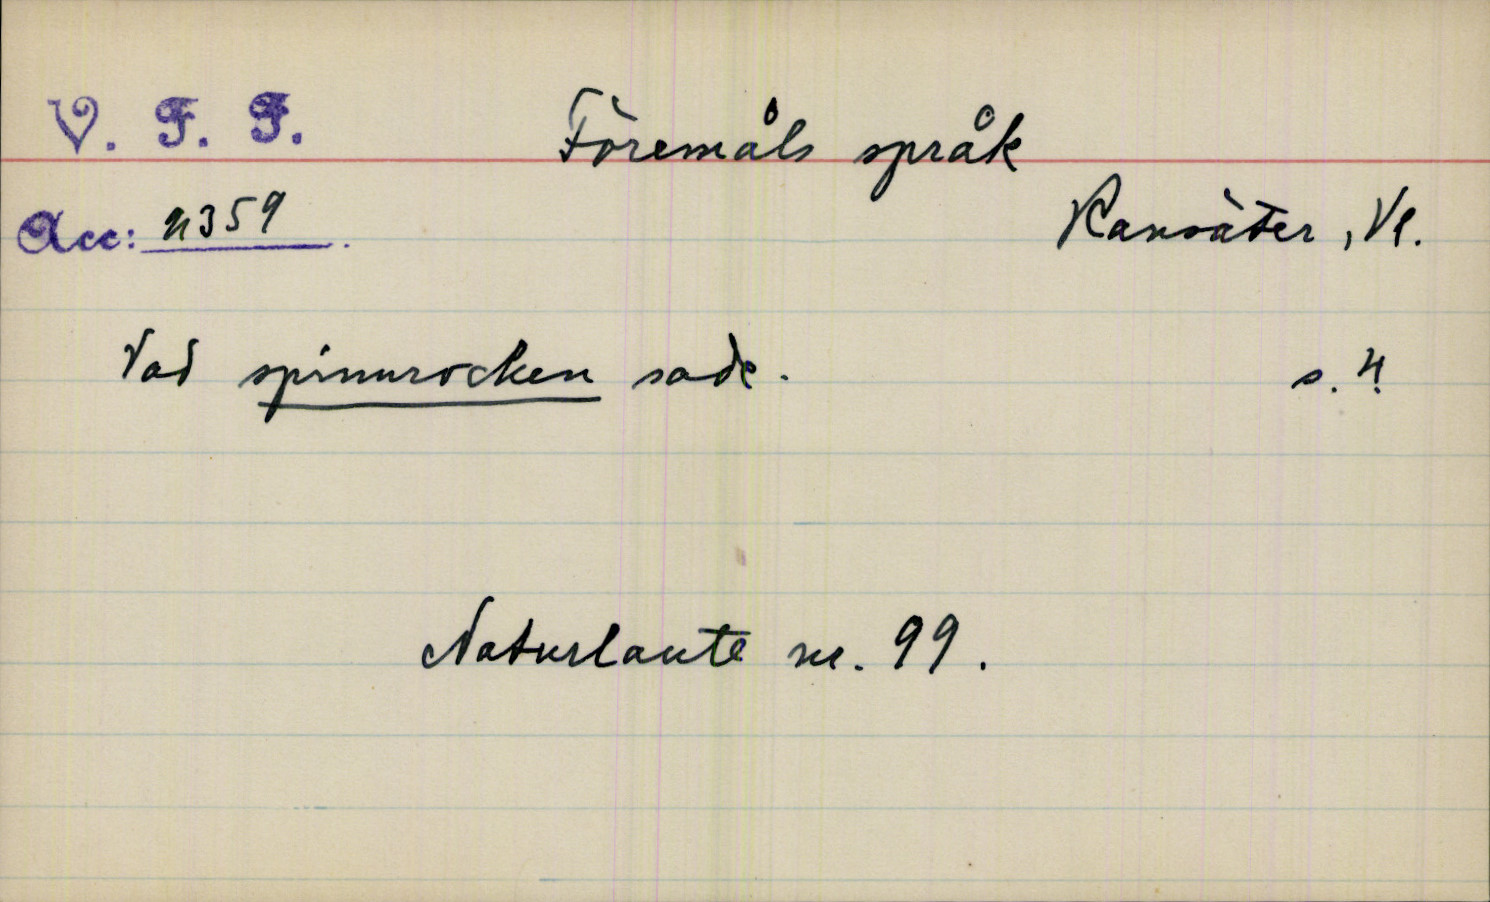 V. F. F.
Föremåls språk
Acc: 4359.
Ransäter, Vl.
Vad spinnrocken sade.
s. 4.
Naturlaute nr. 99.